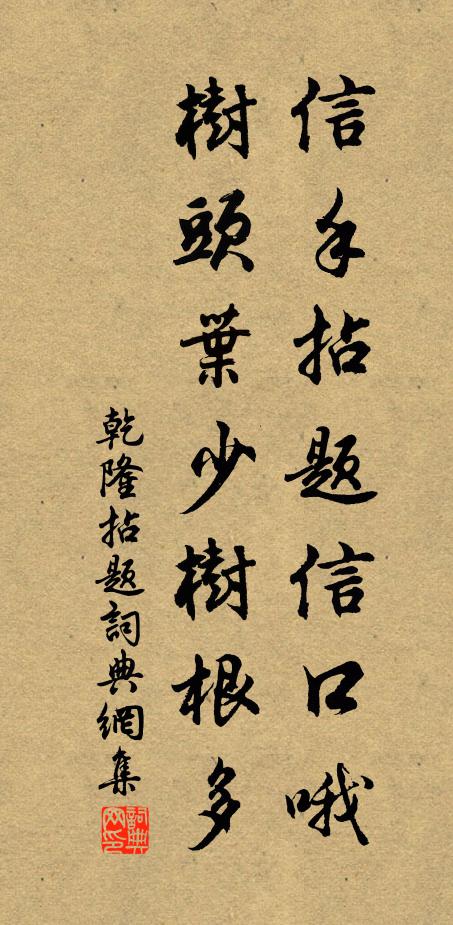 信手拈題信口哦
樹頭葉少樹根多
乾隆拈題詞典網集
詞典網印